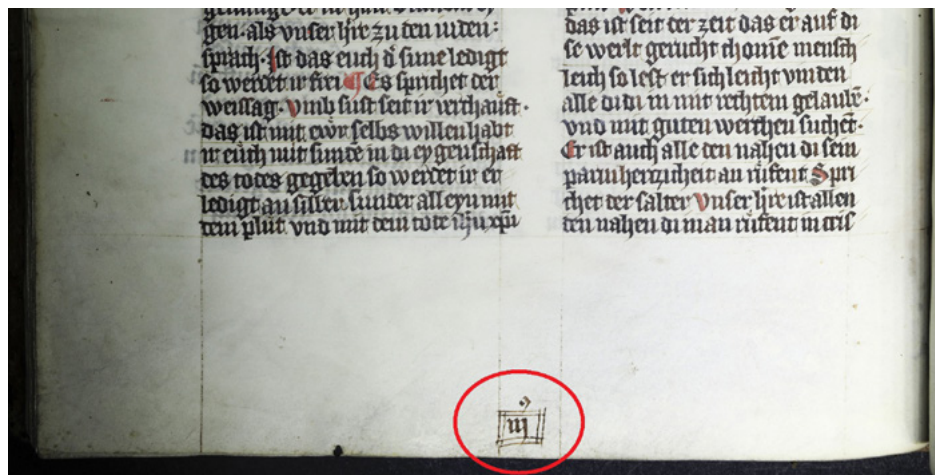 gen · als vnser h̄re zu den iuden :
sprach · Ist das euch d̓ sune ledigt
so werdet ir frei ¶ Es sprichet der
weissag · Vmb sust seit ir verchauft ·
das ist mit ewr̓ selbs willen habt
ir euch mit sunde in di eygenschaft
des todes gegeben so werdet ir er
ledigt an silber sunter alleyn mit
dem plut vnd mit dem tode ih̄u xp̄i
das ist seit der zeit das er auf di
se werlt gerucht chom̄e mensch
leich so lest er sich leicht vinden
alle di di in mit rechtem gelaubē ·
vnd mit guten werchen suchēt ·
Er ist auch alle den nahen di sein
parmherzicheit an rufent Spri
chet der salter Vnser h̄re ist allen
den nahen di in an rufent in dis
iij⁹